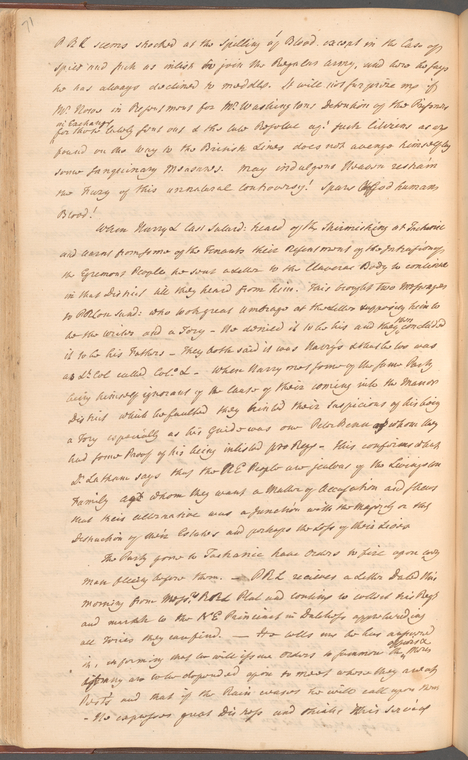 71
PRL seems shocked at the Spilling of Blood. except in the Case of
Spies and such as inlist to join the Regular army, and here he says
he has always declined to meddle. It will not surprize me if
Mr. Howe in Resentment for Mr. Washingtons Detention of the Prisoners
in Exchange
for those lately sent out & the late Resolve agt. such Citizens as are
found on the Way to the British Lines does not avenge himself by
some sanguinary Measures. may indulgent Heaven restrain
the Fury of this unnatural Controversy! Spare O God humane
Blood!
When Harry L last Saturd: heard of the Skirmishing at Tachanic
and learnt from some of the Tenants their Resentment of the Intrusion of
the Egremont People he sent a Letter to the Claverac Body to continue
in that District till they heard from him. This brought two Messengers
to PRL on Sund: who took great Umbrage at the Letter supposing him to
be the writer and a Tory - He denied it to be his and they then concluded
it to be his Fathers - They both said it was Harry's & that he too was
as Lt. Col called Colo. L - When Harry met some of the same Party
being himself ignorant of the Cause of their coming into the Manor
District which he faulted they hinted their Suspicions of his being
a Tory especially as his Guide was one Petr. of whom they
had some Proof of his being inlisted pro Rege - This confirms what
Dr. Latham says that the NE People are jealous of the Livingston
Family agt whom they want a Matter of Accusation and shews
that their alternative was a Junction with the Majority or the
Destruction of their Estates and perhaps the Loss of their Lives
The Party gone to Tachanic have Orders to fire upon every
man fleeing before them. - PRL receives a Letter Dated this
morning from Messrs. RRL Plat and to collect his Regt
and march to the NE Precinct in Dutchess apprehending
all Tories they can find. - He tells me he has answered
it, informing that he will issue Orders to summon them
if any are to be depended upon to meet where they are to
Posts and that if the Rain ceases he will call upon them
- He expresses great Distress and thinks this Service